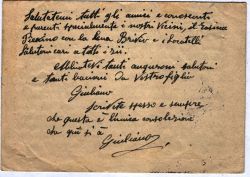 Salutatemi tutti gli amici e conoscenti
e parenti specialmente i nostri Vicini, il
con la e i Locatelli
Salutoni cari a tutti i zii.
tanti auguroni salutoni
e tanti bacioni Da Vostro figlio
Giuliano
Scrivete spesso e sempre
che questa è l'unica consolazione
che qui si à
Giuliano